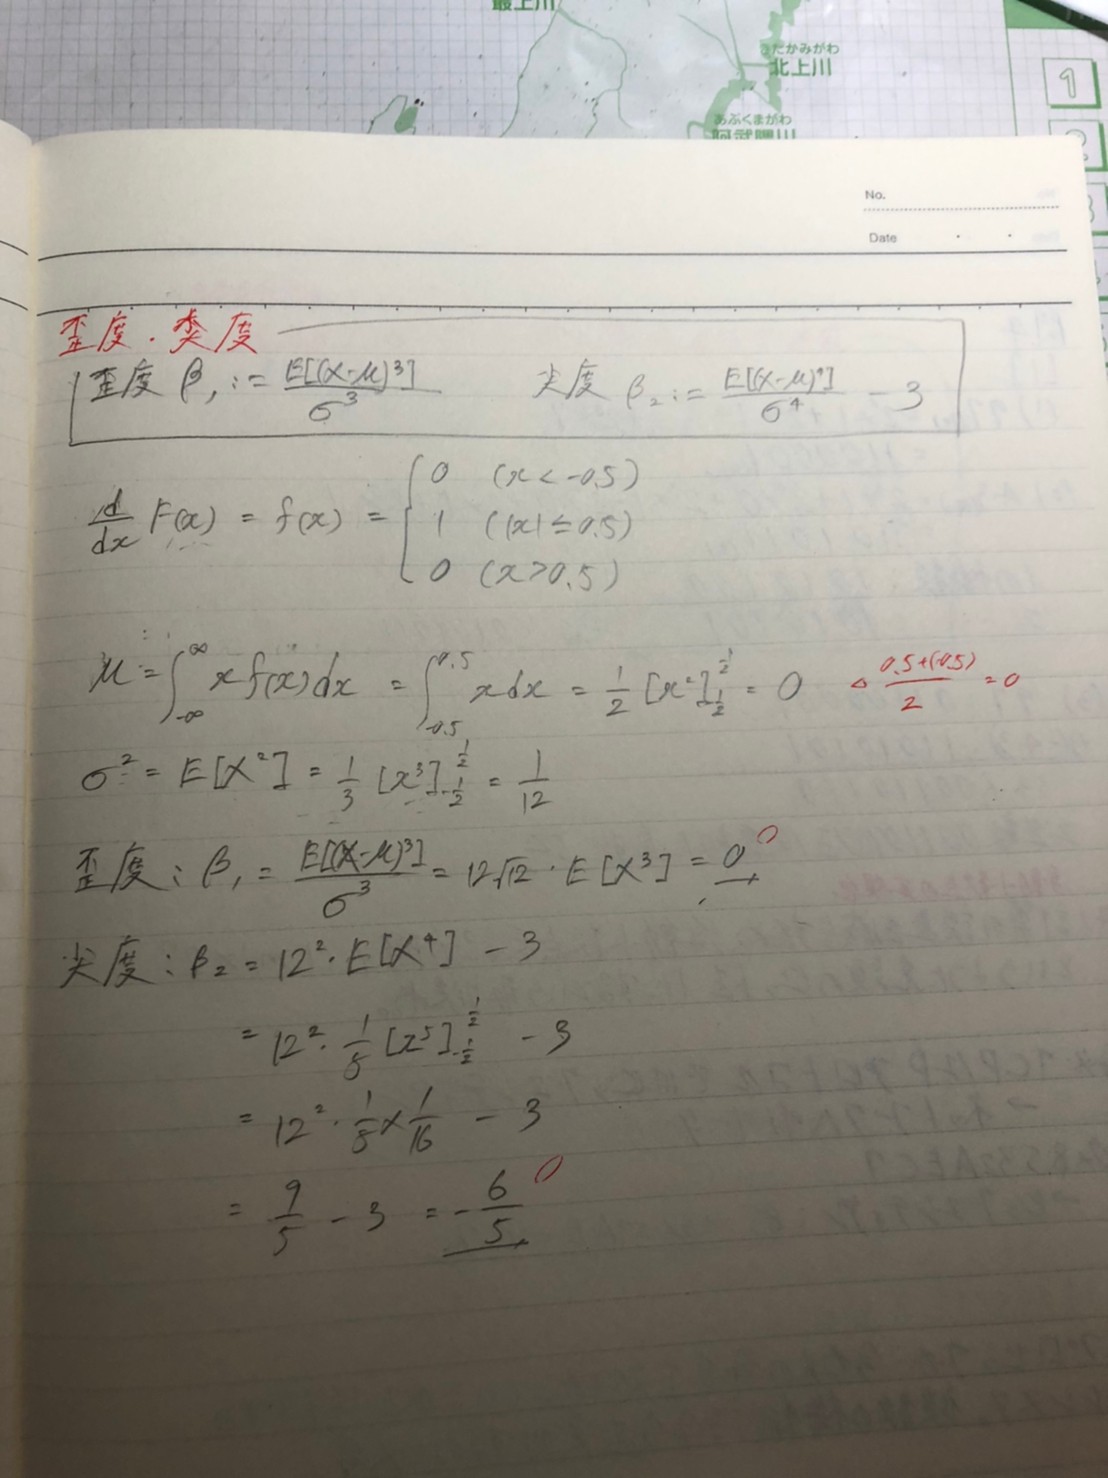 最上川
きたかみがわ
北上川
あぶくまがわ
阿武隈川
1
2
No.
Date
歪度・尖度
歪度 β₁ := E[(X-μ)³]/σ³ 尖度 β₂ := E[(X-μ)⁴]/σ⁴ - 3
d/dx F(x) = f(x) = { 0 (x < -0.5)
1 (|x| ≤ 0.5)
0 (x > 0.5)
μ = ∫_{-∞}^{∞} x f(x) dx = ∫_{-0.5}^{0.5} x dx = 1/2 [x²]_{-1/2}^{1/2} = 0 △ (0.5+(-0.5))/2 = 0
σ² = E[X²] = 1/3 [x³]_{-1/2}^{1/2} = 1/12
歪度 : β₁ = E[(X-μ)³]/σ³ = 12√12 · E[X³] = 0
尖度 : β₂ = 12² · E[X⁴] - 3
= 12² · 1/5 [x⁵]_{-1/2}^{1/2} - 3
= 12² · 1/5 × 1/16 - 3
= 9/5 - 3 = -6/5